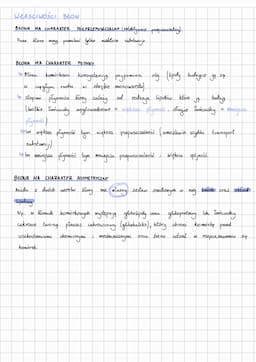 WŁAŚCIWOŚCI BŁON
BŁONA MA CHARAKTER PÓŁPRZEPUSZCZALNY (selektywnie przepuszczalny)
Przez błonę mogą przenikać tylko niektóre substancje
BŁONA MA CHARAKTER PŁYNNY
Błona komórkowa konsystencją przypomina olej (lipidy budujące ją są
w ciągłym ruchu w obrębie monowarstw)
Stopień płynności błony zależy od rodzaju lipidów które ją budują
(krótkie łańcuchy węglowodorowe = większa płynność, długie łańcuchy = mniejsza
płynność)
im większa płynność tym większa przepuszczalność (umożliwia szybki transport
substancji)
im mniejsza płynność tym mniejsza przepuszczalność i większa sztywność
BŁONA MA CHARAKTER ASYMETRYCZNY
Każda z dwóch warstw błony ma własny zestaw osadzonych w niej białek oraz układ
lipidowy
Np. w błonach komórkowych występują glikolipidy oraz glikoproteiny. Ich łańcuchy
cukrowe tworzą płaszcz cukrowcowy (glikokaliks), który chroni komórkę przed
uszkodzeniami chemicznymi i mechanicznymi oraz bierze udział w rozpoznawaniu się
komórek.